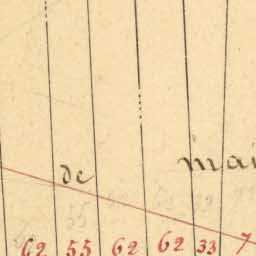 de mai
62 55 62 62 33 7